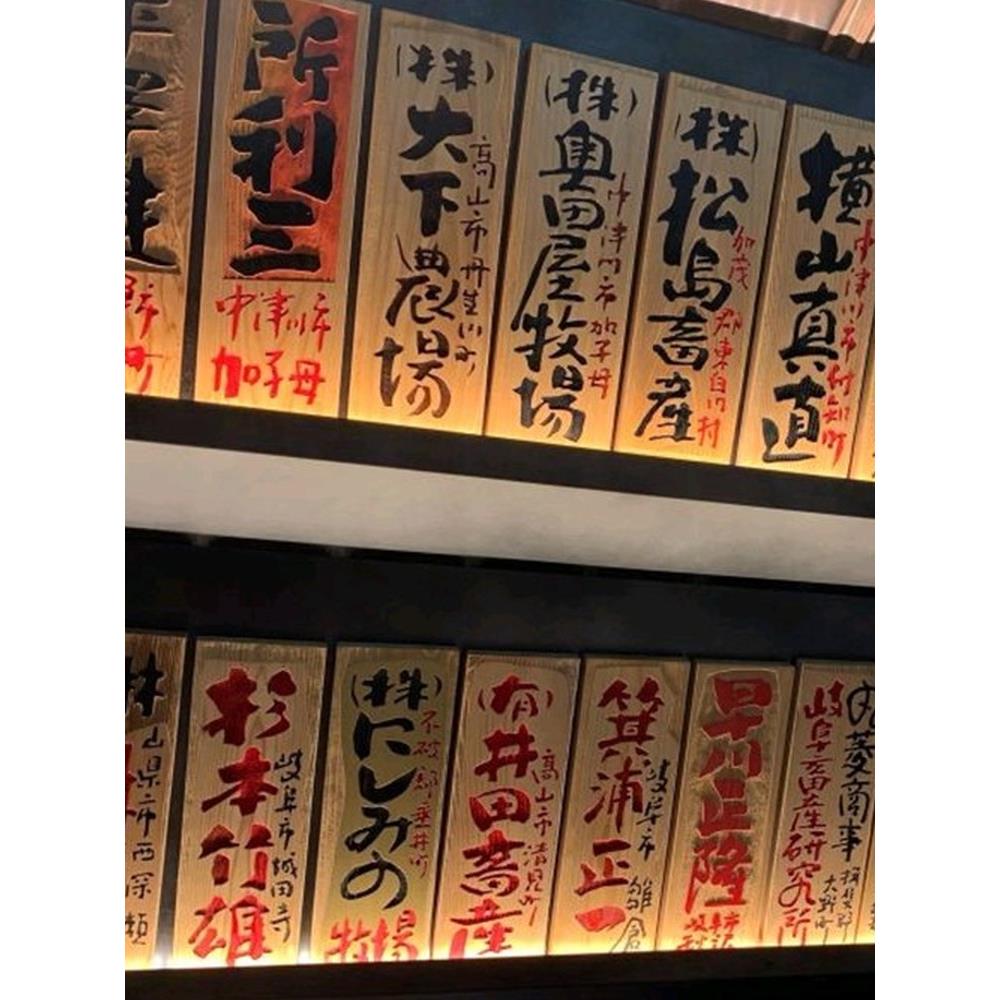 所利三
中津川市
加子母
(株)大下農場
高山市丹生川町
(株)奥田屋牧場
中津川市加子母
(株)松島畜産
加茂郡東白川村
横山真道
中津川市付知町
林
山県市西深瀬
杉本竹雄
岐阜市城田寺
(株)にしみの牧場
不破郡垂井町
(有)井田畜産
高山市清見町
箕浦正一
岐阜市雛倉
早川正隆
丸菱商事
岐阜畜産研究所